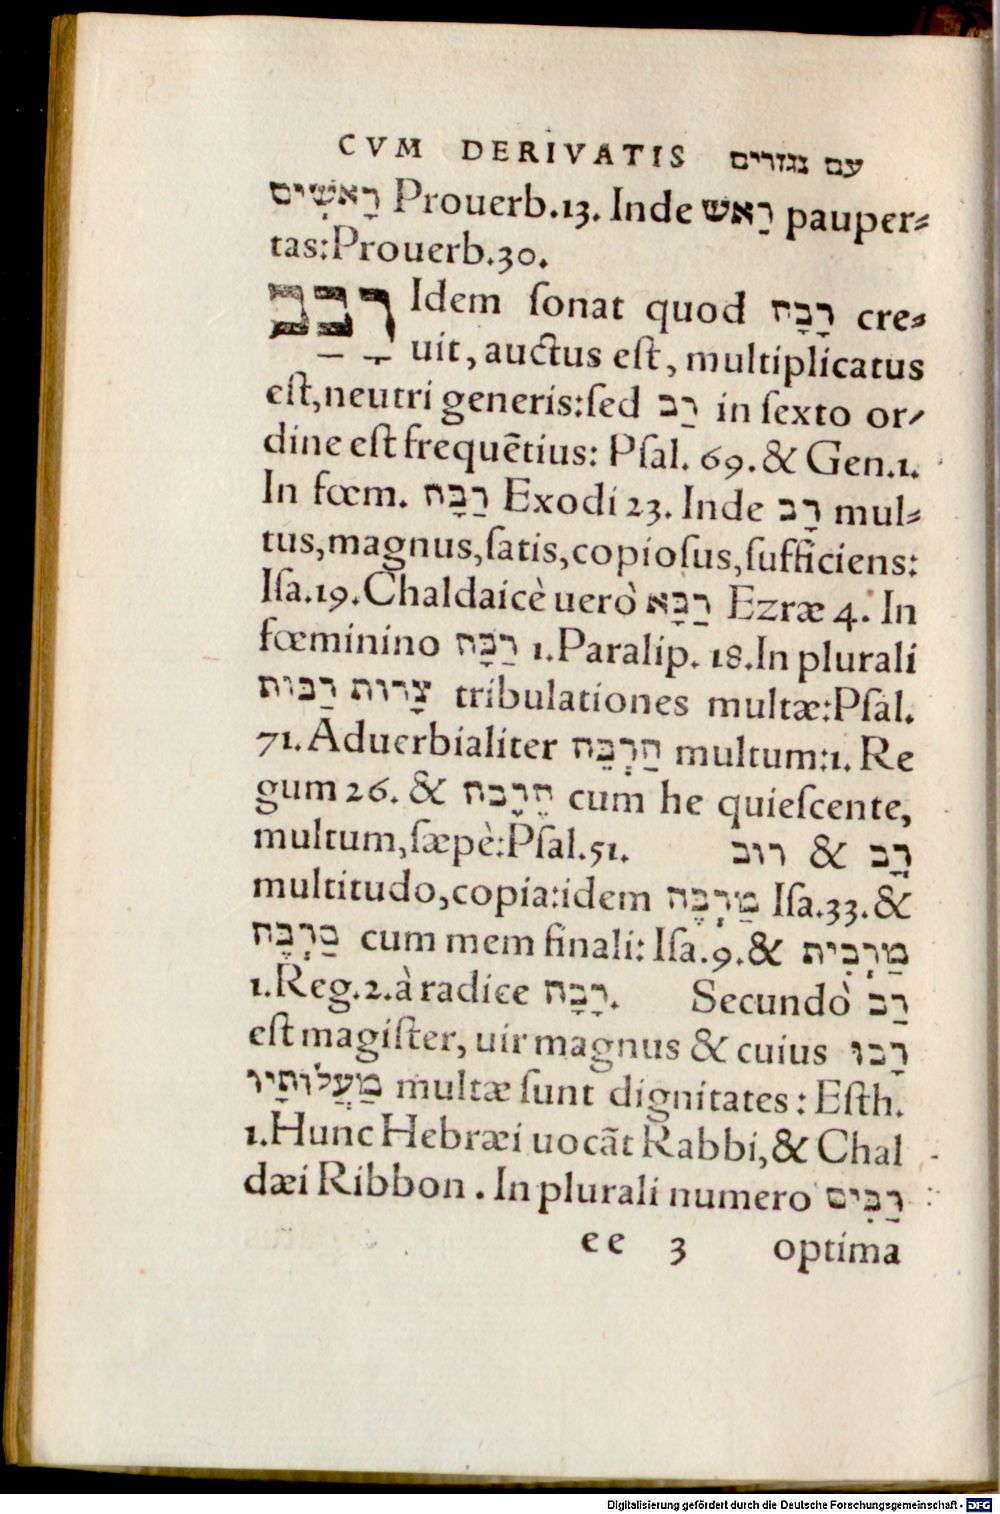 CVM DERIVATIS עם נגזרים
רָאשִׁים Prouerb.13. Inde רֵאשׁ pauper⸗
tas:Prouerb.30.
רָבַב Idem ſonat quod רָבָה cre⸗
uit, auctus eſt, multiplicatus
eſt,neutri generis:ſed רַב in ſexto or⸗
dine eſt frequētius: Pſal. 69. & Gen.1.
In fœm. רַבָּה Exodi 23. Inde רָב mul⸗
tus,magnus,ſatis,copioſus,ſufficiens:
Iſa.19.Chaldaicè uerò רַבָּא Ezræ 4. In
fœminino רַבָּה 1.Paralip. 18.In plurali
צָרוֹת רַבּוֹת tribulationes multæ:Pſal.
71.Aduerbialiter הַרְבֵּה multum:1. Re
gum 26. & הֶרָבה cum he quieſcente,
multum,ſæpè:Pſal.51. רֳב & רוב
multitudo,copia:idem מַרְבֶּה Iſa.33.&
םַרְבֶּה cum mem finali: Iſa.9.& מַרְבִּית
1.Reg.2.à radice רָבָה. Secundò רַב
eſt magiſter, uir magnus & cuius רָבוּ
מַעֲלוֹתָיו multæ ſunt dignitates: Eſth.
1.Hunc Hebræi uocāt Rabbi,& Chal
dæi Ribbon. In plurali numero רַבִּים
ee 3 optima
Digitalisierung gefördert durch die Deutsche Forschungsgemeinschaft - DFG